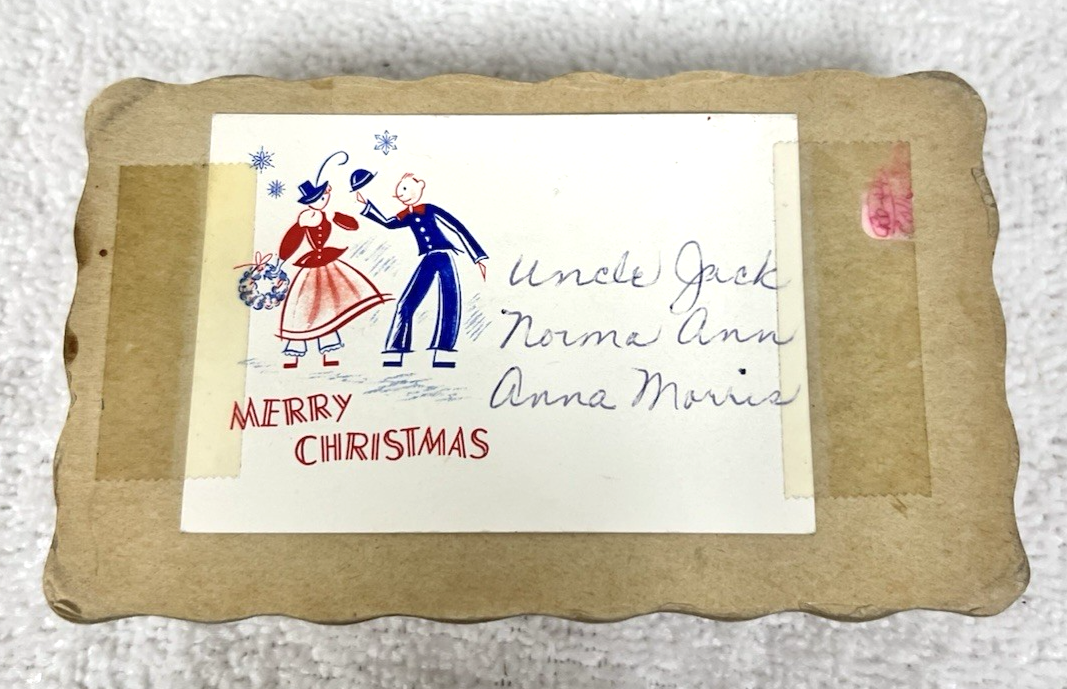 MERRY
CHRISTMAS
Uncle Jack
Norma Ann
Anna Morris